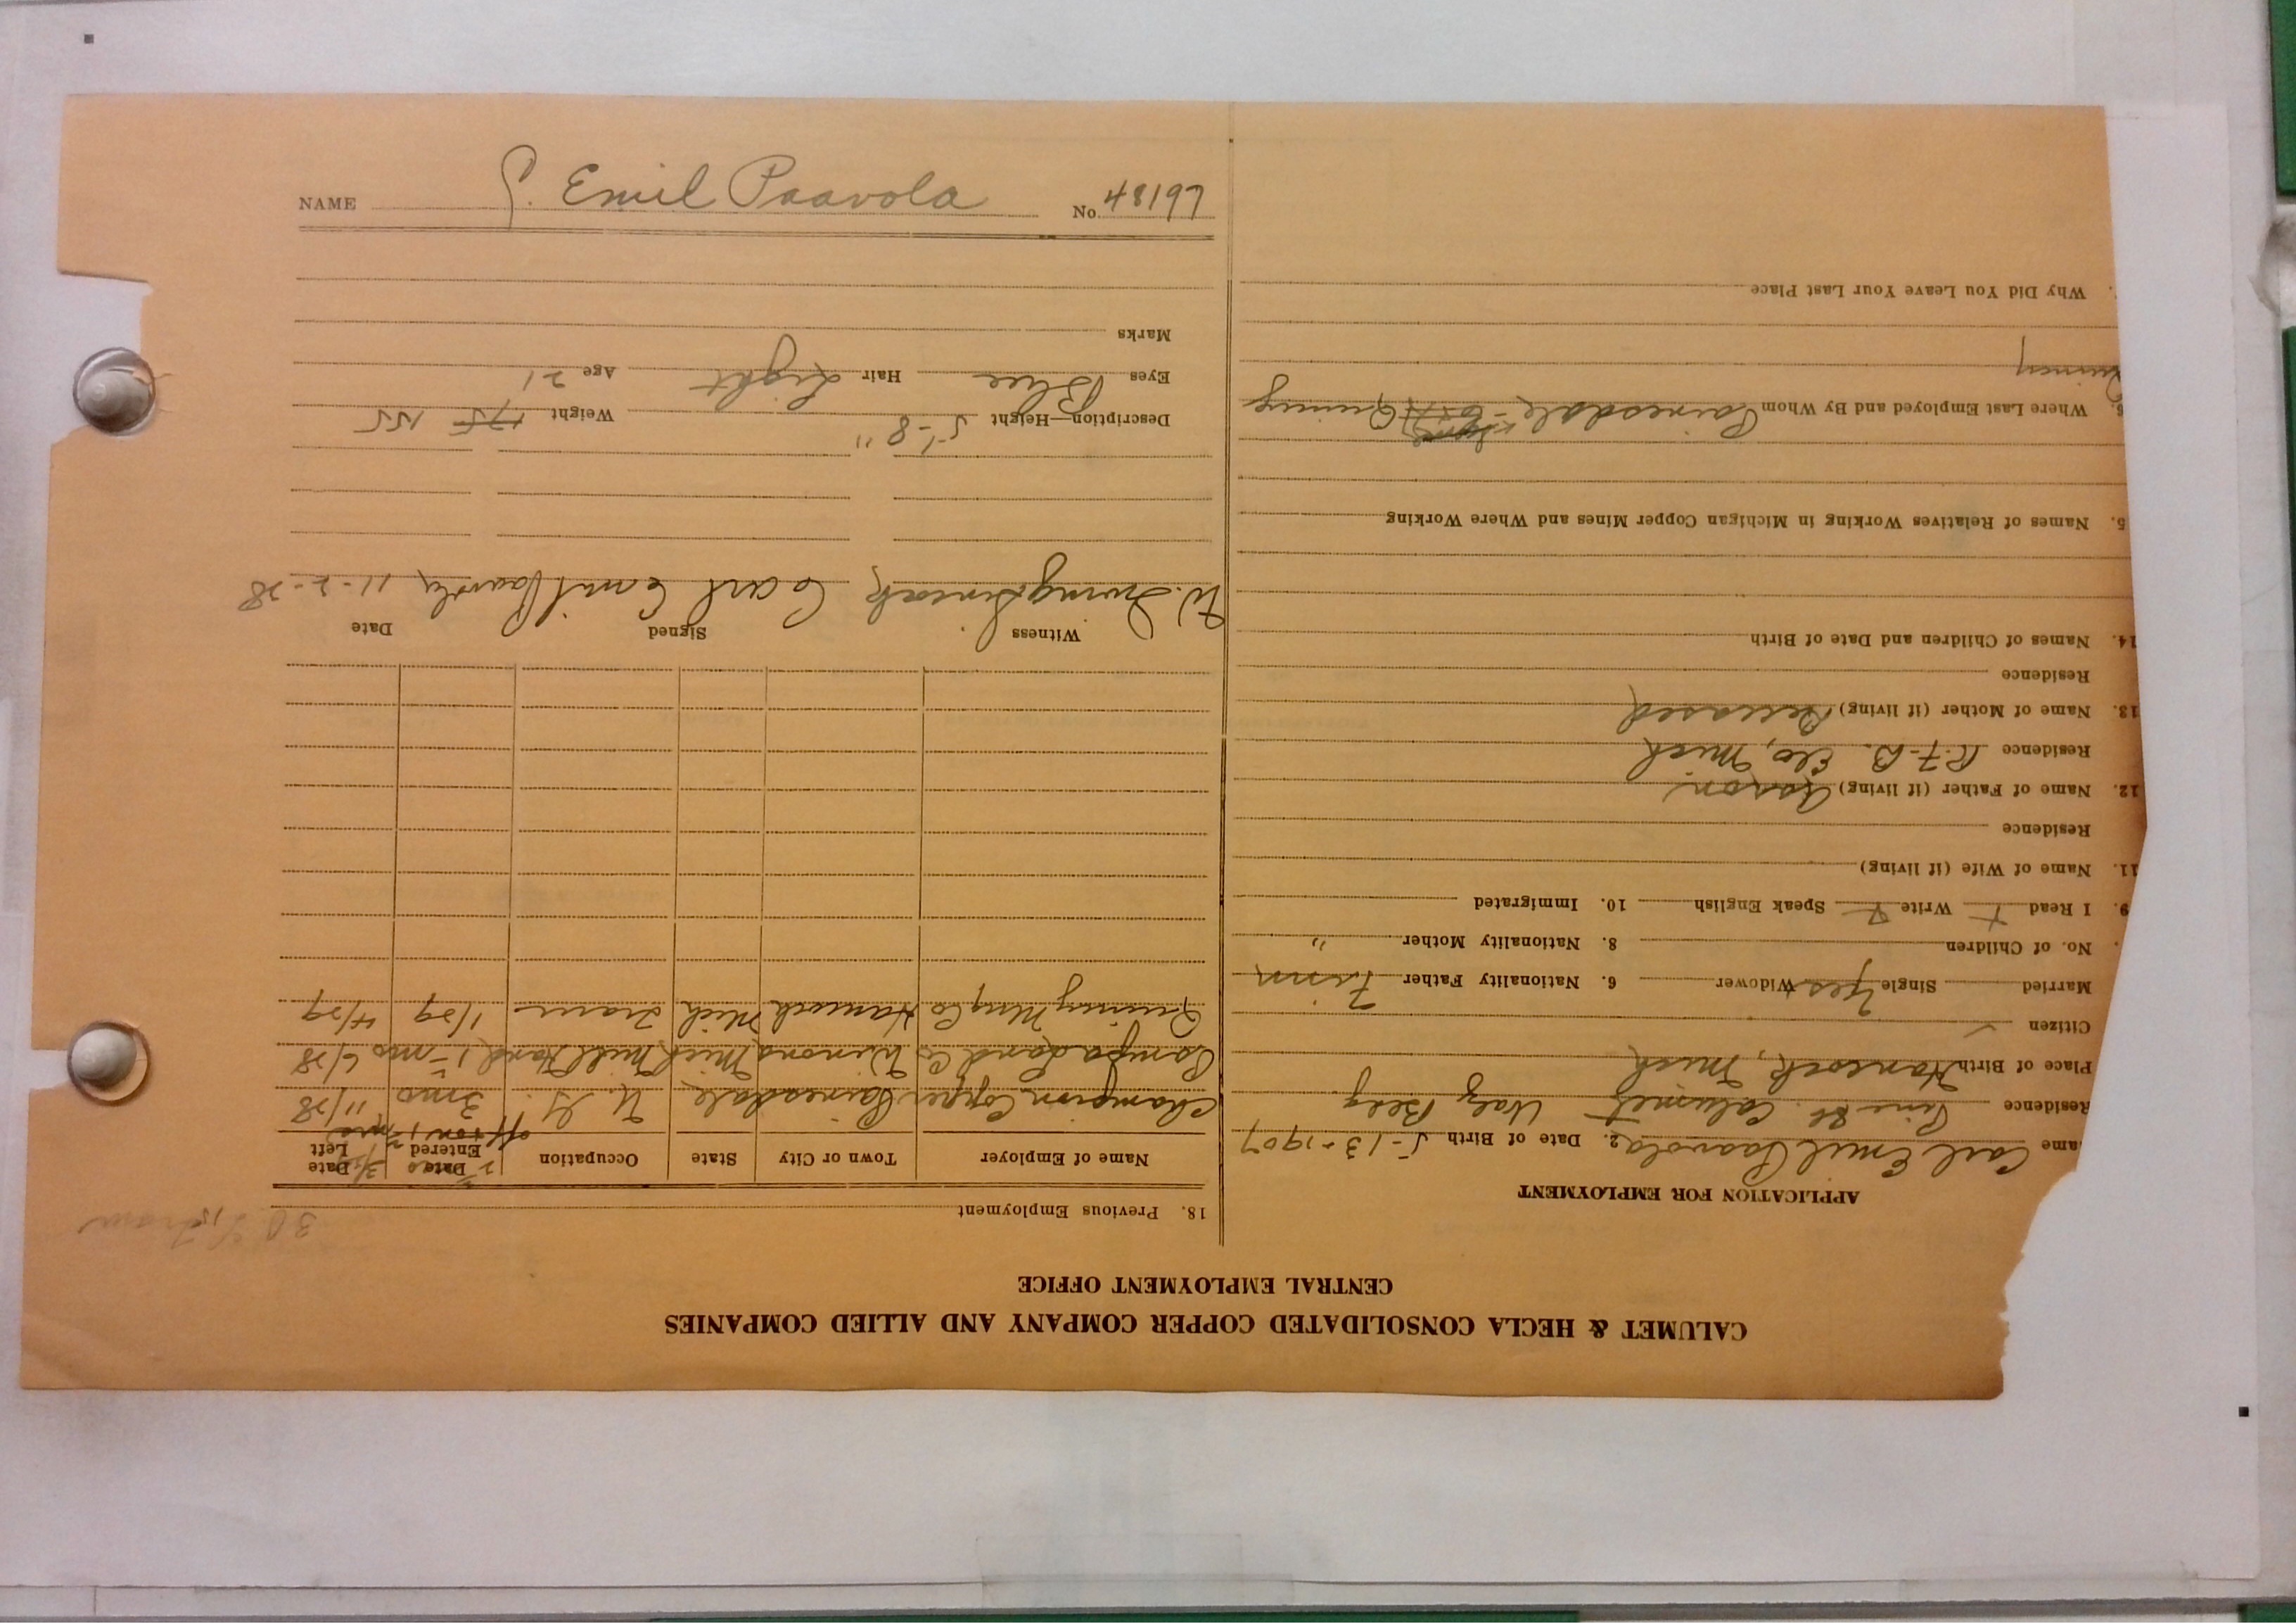 NAME C. Emil Paavola No. 48197
CALUMET & HECLA CONSOLIDATED COPPER COMPANY AND ALLIED COMPANIES
CENTRAL EMPLOYMENT OFFICE
APPLICATION FOR EMPLOYMENT
ame Carl Emil Paavola 2. Date of Birth 5-13-1907
Residence Pine St. Calumet Bldg
Place of Birth Hancock, Mich
Citizen
Married Single Yes Widower 6. Nationality Father Finn
No. of Children 8. Nationality Mother "
9. I Read Write Speak English 10. Immigrated
11. Name of Wife (if living)
Residence
12. Name of Father (if living) Aaron
Residence R.F.D. Elo, Mich
13. Name of Mother (if living) Deceased
Residence
14. Names of Children and Date of Birth
5. Names of Relatives Working in Michigan Copper Mines and Where Working
6. Where Last Employed and By Whom Painesdale Quincy
Quincy
Why Did You Leave Your Last Place
18. Previous Employment
Name of Employer Town or City State Occupation Date Entered Date Left
Champion Copper Painesdale U. G. 3 mo 11/28
Land Co Winona Mich Mill Hand 1 mo 6/28
Quincy Mng Co Hancock Mich Tram 1/29 4/29
Witness Signed Date
W. Irving Carl Emil Paavola 11-2-28
Description—Height 5'-8" Weight 175 155
Eyes Blue Hair Light Age 21
Marks